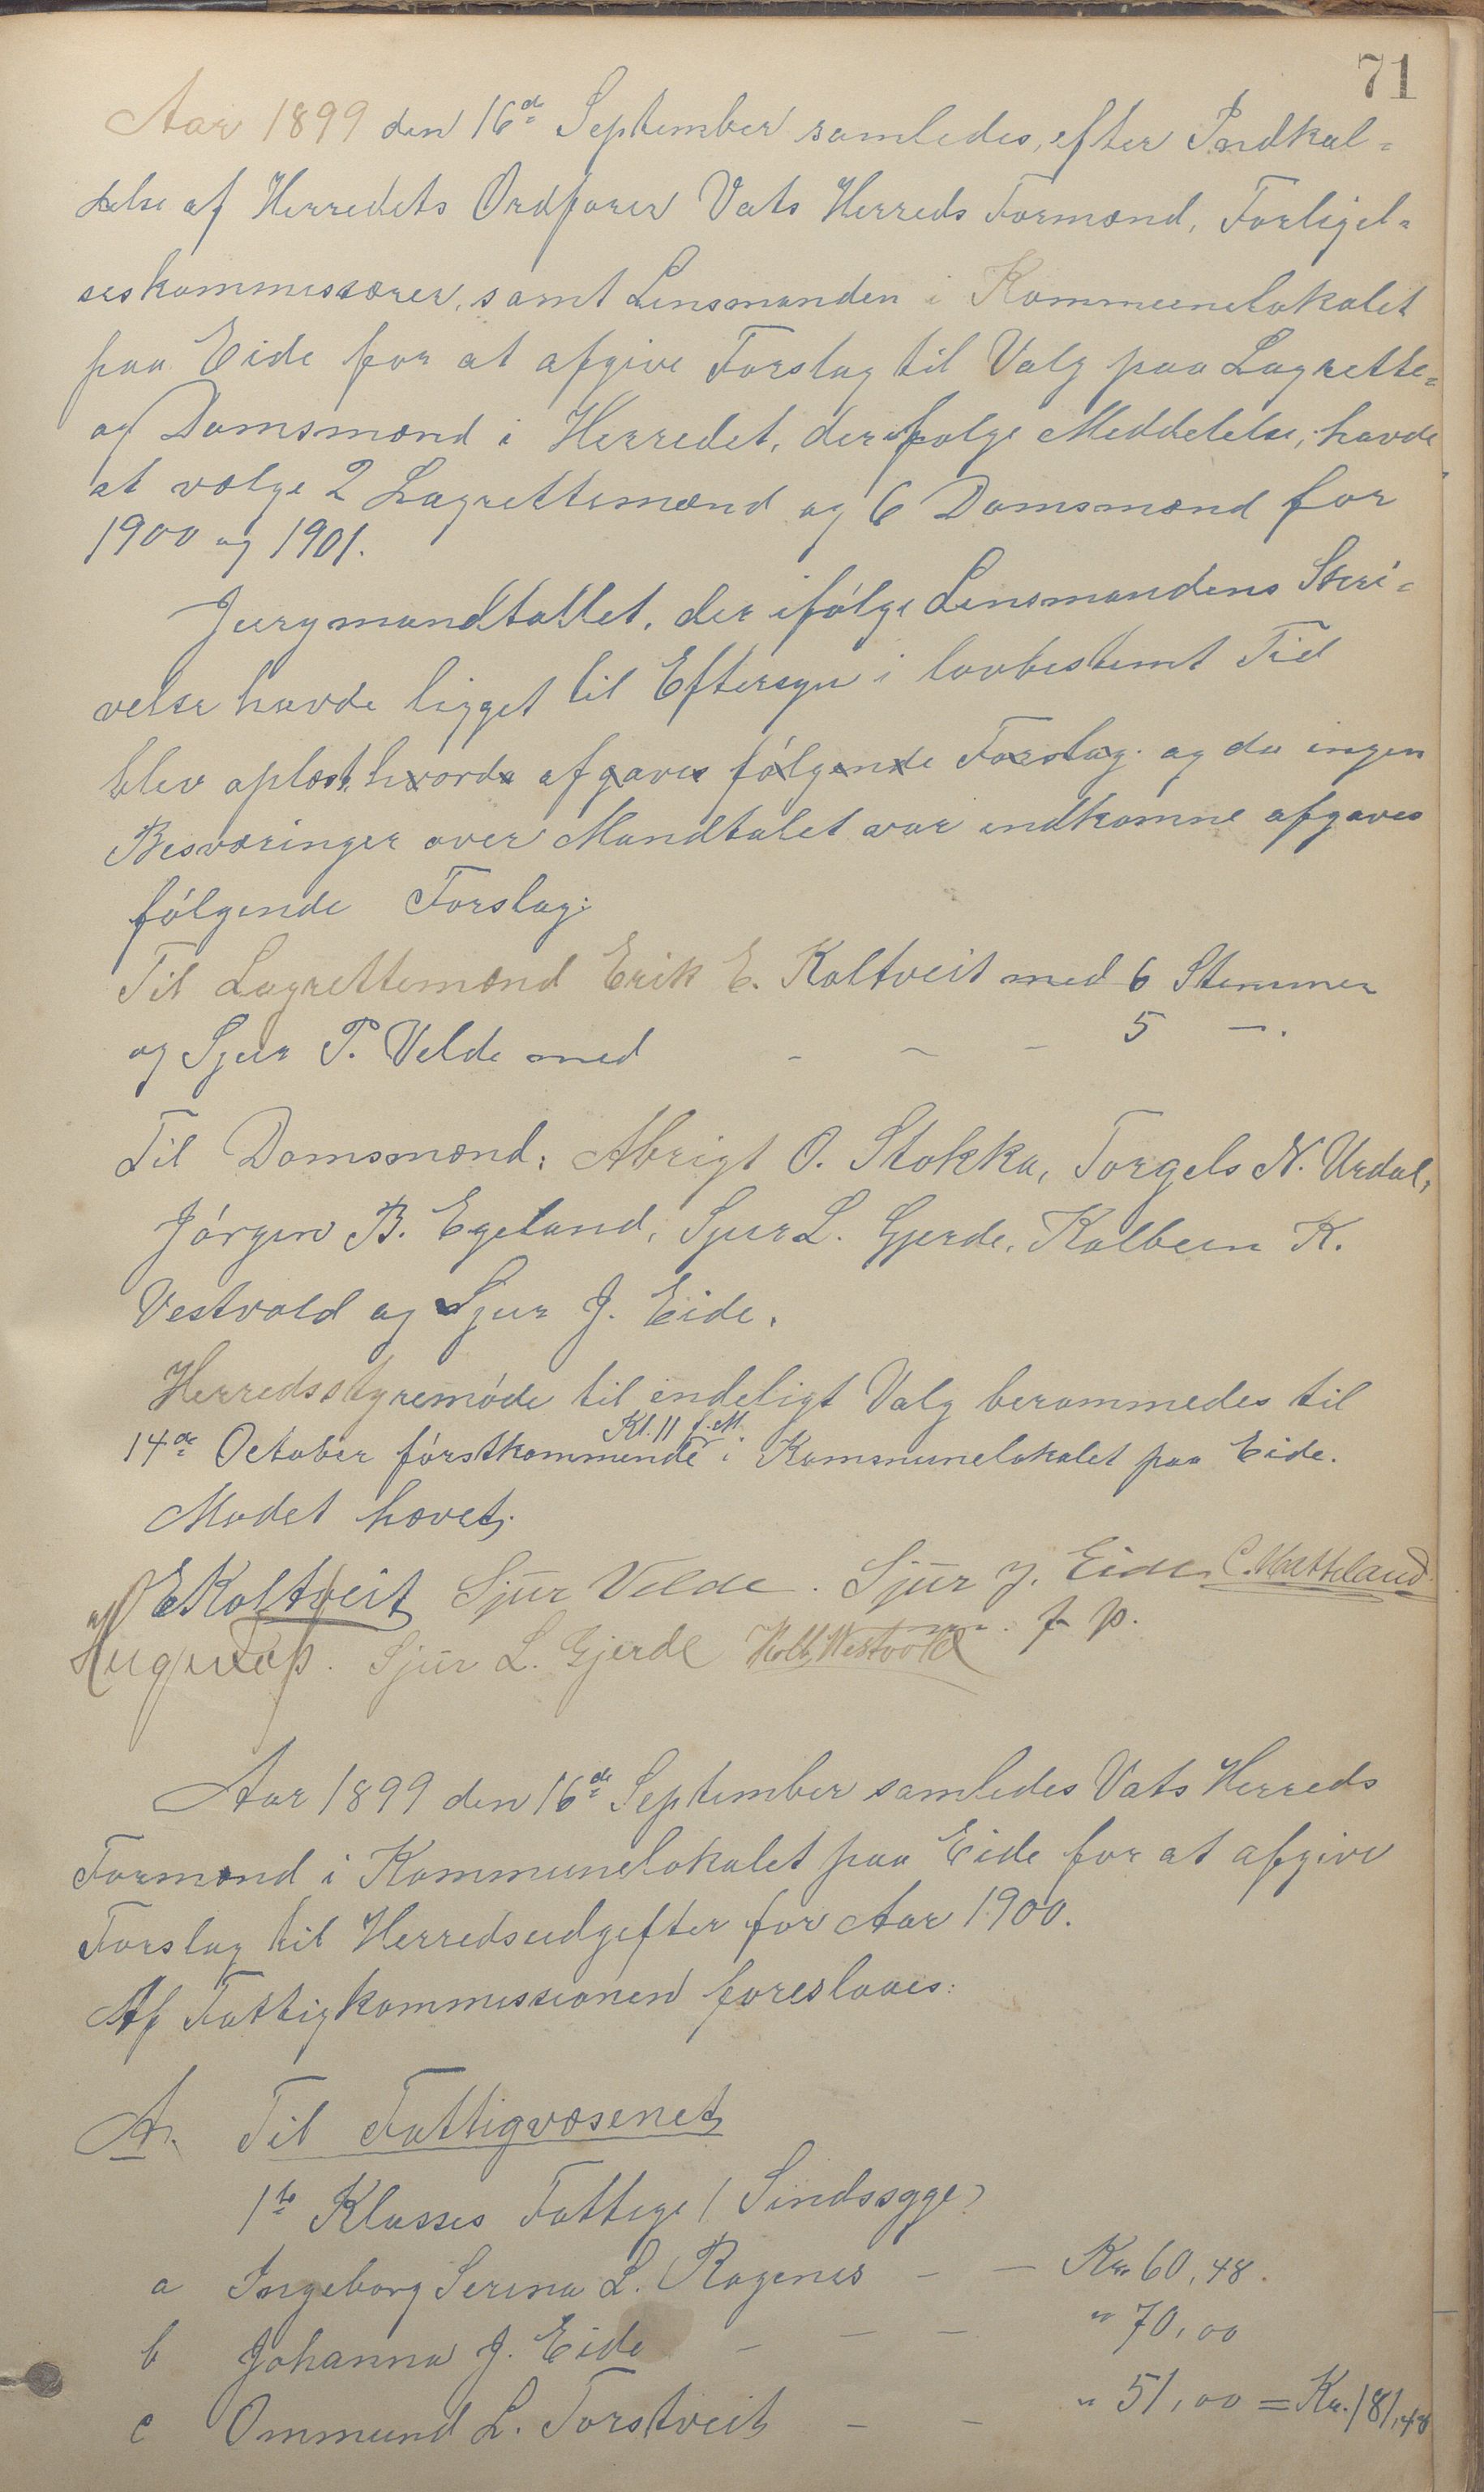 71
Aar 1899 den 16de September samledes, efter Indkal=
delse af Herredets Ordfører Vats Herreds Formænd, Forligel=
seskommissærer, samt Lensmanden i Kommunelokalet
paa Eide for at afgive Forslag til Valg paa Lagrette=
og Domsmænd i Herredet, der ifølge Meddelelse, havde
at vælge 2 Lagrettemænd og 6 Domsmænd for
1900 og 1901.
Jurymandtallet, der ifølge Lensmandens Skri=
velse havde ligget til Eftersyn i lovbestemt Tid
blev oplæst, hvorda afgaves følgende Forslag. og da ingen
Besværinger over Mandtalet var indkomne afgaves
følgende Forslag:
Til Lagrettemænd Erik E. Koltveit med 6 Stemmer
og Sjur P. Velde med - - - 5 -.
Til Domsmænd: Abrigt O. Stokka, Torgels N. Urdal,
Jørgen B. Egeland, Sjur L. Gjerde, Kolbein K.
Vestvold og Sjur J. Eide.
Herredsstyremøde til endeligt Valg berammedes til
Kl. 11 f.M.
14de October førstkommende i Kommunelokalet paa Eide.
Mødet hævet.
EKoltveit Sjur Velde. Sjur J. Eide
Sjur L. Gjerde Kolb. Westvold f p.
Aar 1899 den 16de September samledes Vats Herreds
Formænd i Kommunelokalet paa Eide for at afgive
Forslag til Herredsudgifter for Aar 1900.
Af Fattigkommissionen foreslaaes:
A. Til Fattigvæsenet
1ste Klasses Fattige (Sindssyge)
a Ingeborg Serina L. Ragenes - - Kr. 60,48.
b Johanna J. Eide - - - " 70,00
c Ommund L. Torstveit - - " 51,00 = Kr. 181,48